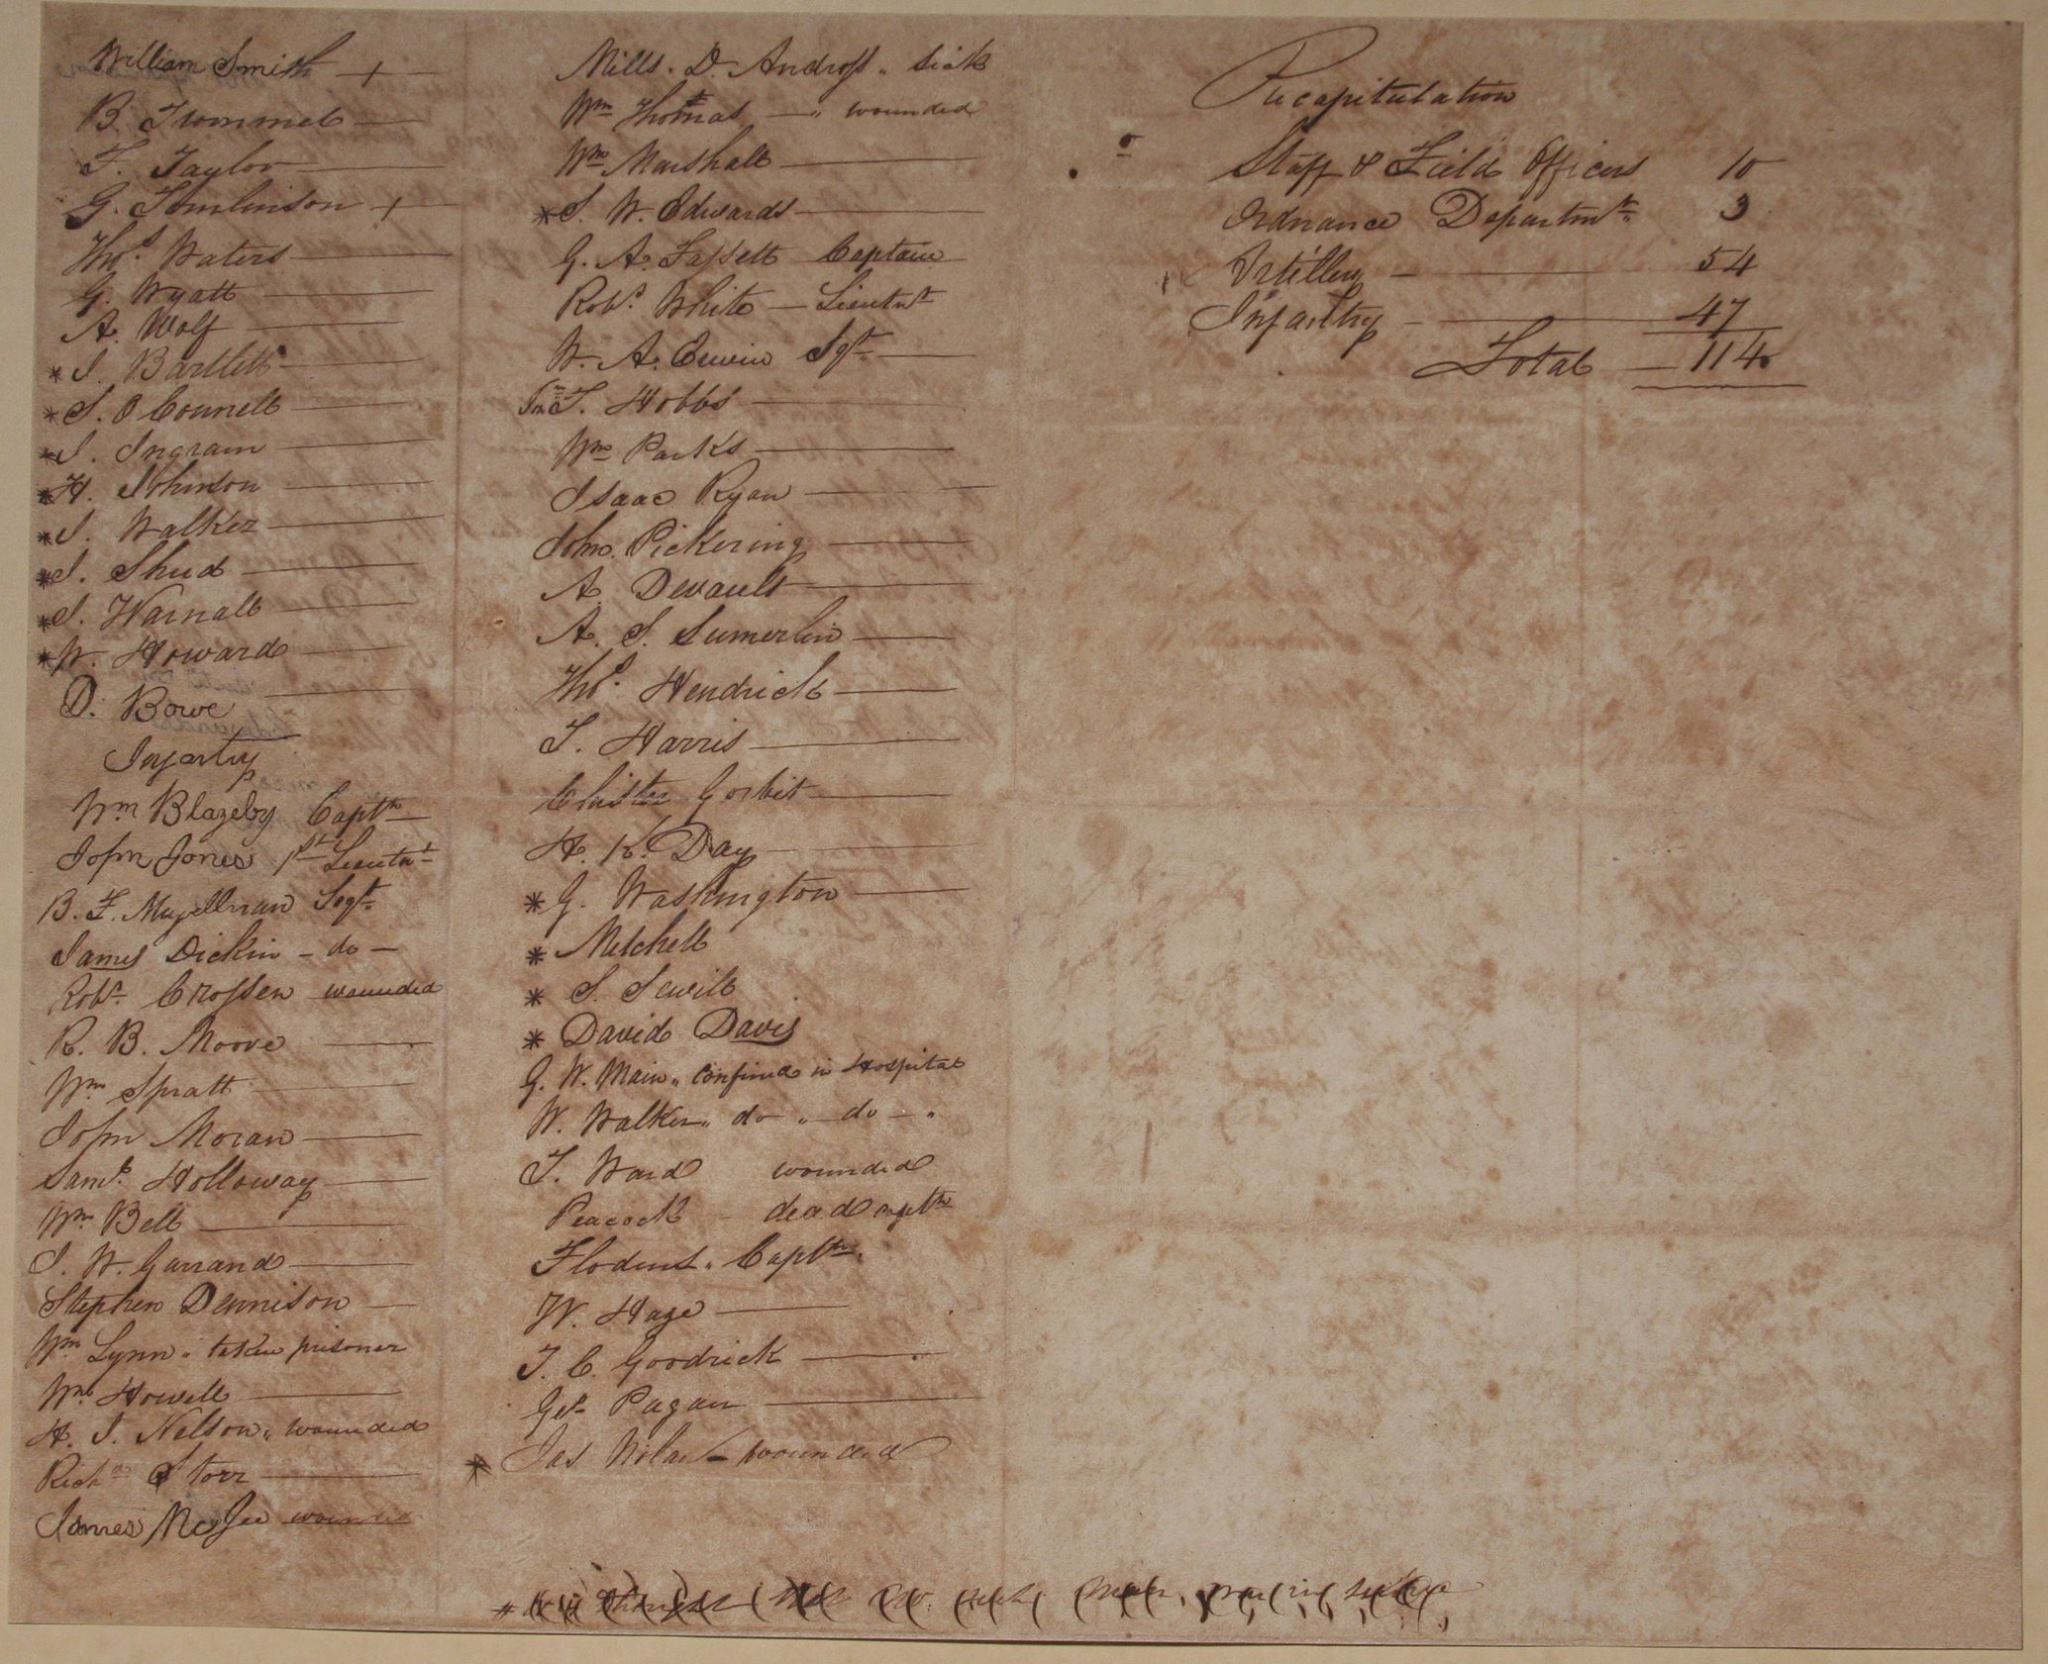 William Smith +
B. Trommel
F. Taylor
G. Tomlinson +
Thos. Waters
G. Wyatt
A. Wolf
* J. Bartlett
* S. O Connell
* J. Ingram
* H. Johnson
* J. Walker
* J. Shud
* J. Warnall
* W. Howard
D. Bowe
Infantry
Wm Blazeby Captn
John Jones 1st Lieutnt
B. F. Mugellman Segt
James Dickin - do -
Robt Crossen wounded
R. B. Moore
Wm Spratt
John Moran
Saml. Holloway
Wm Bell
J. W. Garrand
Stephen Dennison
Wm Lynn " taken prisoner
Wm Howell
H. J. Nelson " wounded
Richd Storr
James McGee wounded
Mills. D. Andross " sick
Wm Thomas — " wounded
Wm Marshall
* S. W. Edwards
G. A. Fassett Captain
Robt. White — Lieutnt
W. A. Erwin Sgt
T. Hobbs
Wm Parks
Isaac Ryan
John Pickering
A. Devault
A. S. Sumerlin
Thos. Hendrick
T. Harris
Christer Gorbet
H. K. Day
* G. Washington
* Mitchell
* S. Sewill
* David Davis
G. W. Main " confined in Hospital
W. Walker " do " do - "
T. Ward wounded
Peacock - dead
Floders " Captn.
W. Haze
T. C. Goodrick
Pagan
* Jas Nolan - wounded
Recapitulation
Staff & Field Officers 10
Ordnance Departmnt 3
Artillery — 54
Infantry — 47
Total — 114